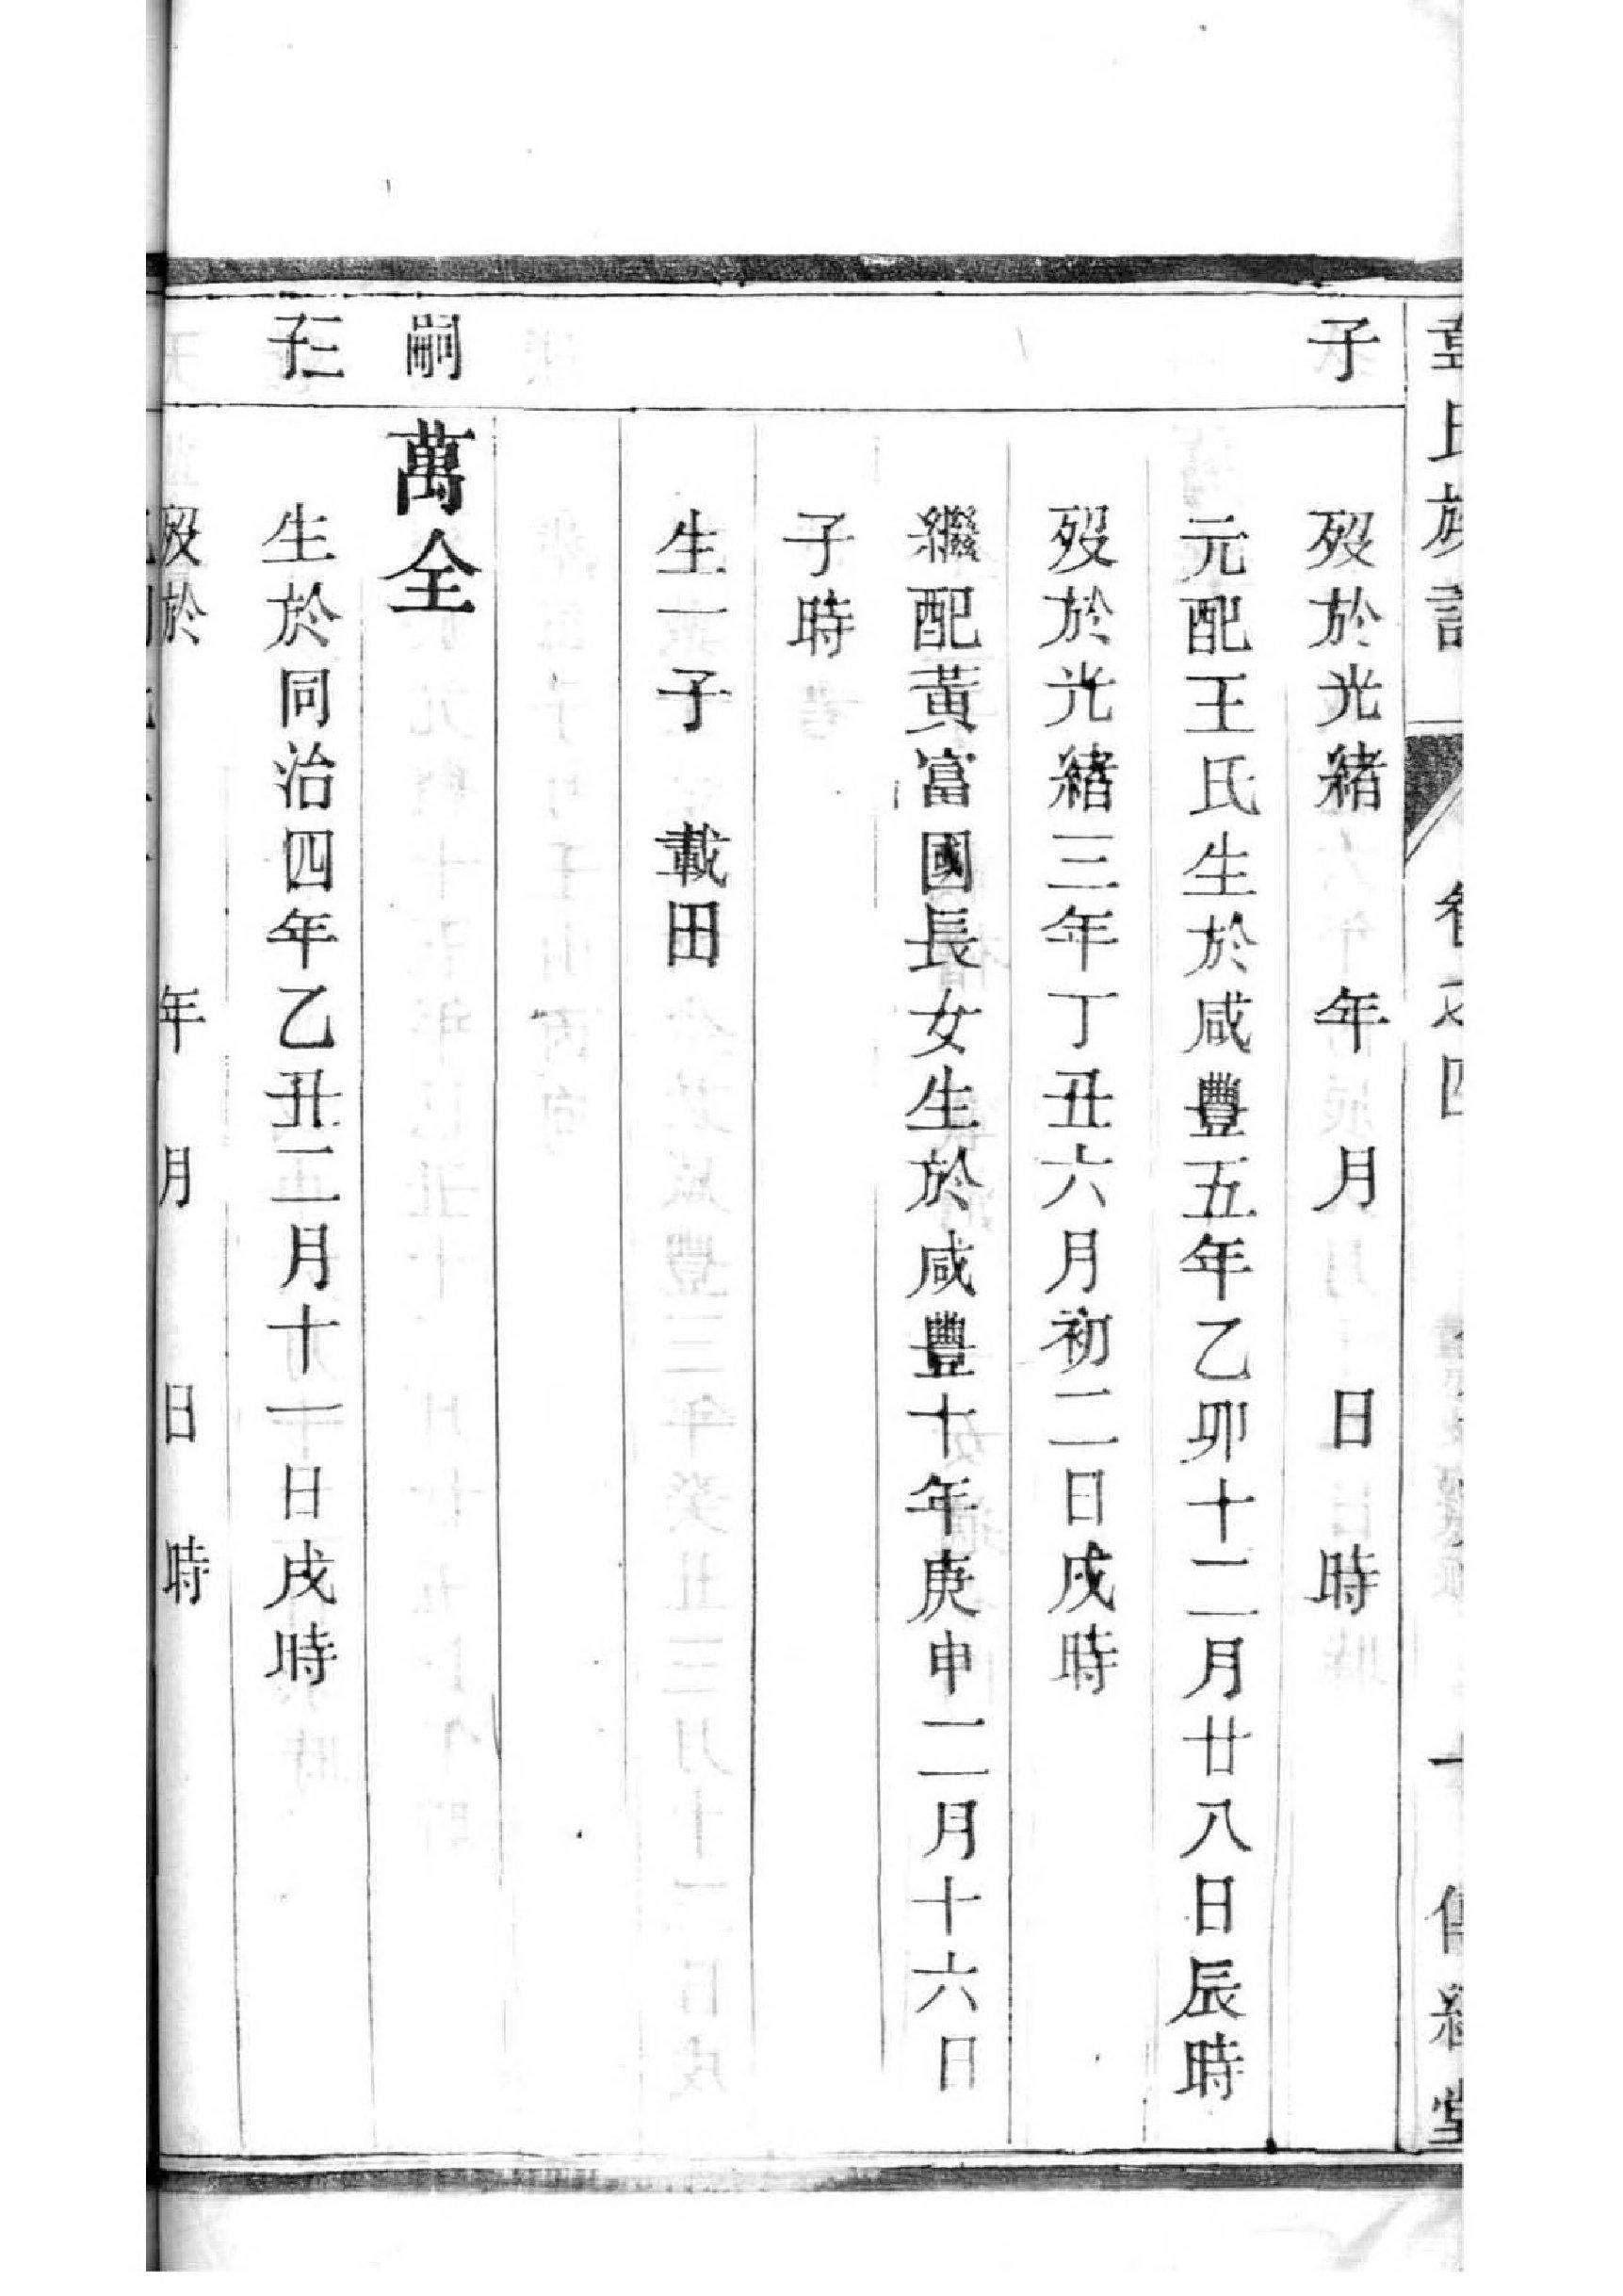 氏族譜　卷之四　十　傳經堂
子
歿於光緒　年　月　日時
元配王氏生於咸豐五年乙卯十二月廿八日辰時
歿於光緒三年丁丑六月初二日戌時
繼配黃富國長女生於咸豐十年庚申二月十六日
子時
生一子　載田
嗣　萬全
子三
生於同治四年乙丑二月十一日戌時
歿於　年　月　日時